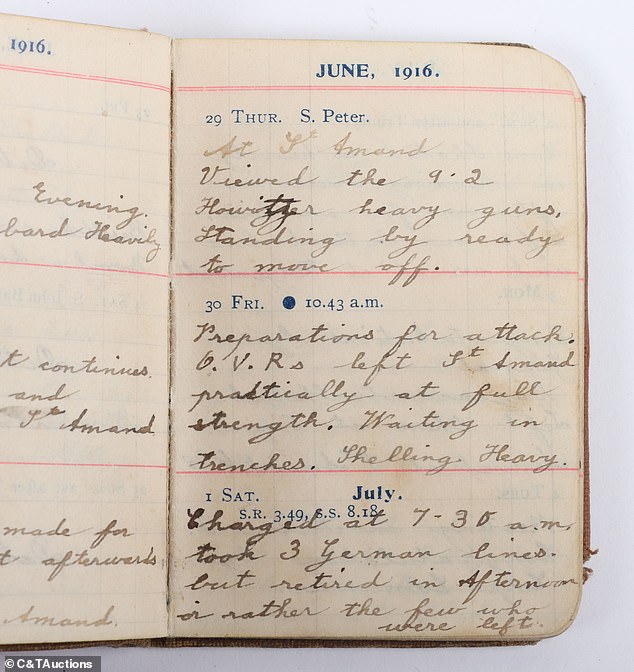 1916.
Evening.
bard Heavily
t continues.
and
St Amand
made for
t afterwards
Amand.
JUNE, 1916.
29 THUR. S. Peter.
At St Amand
Viewed the 9·2
Howitzer heavy guns.
Standing by ready
to move off.
30 FRI. ● 10.43 a.m.
Preparations for attack.
Q. V. Rs left St Amand
practically at full
strength. Waiting in
trenches. Shelling Heavy.
1 SAT. July.
S.R. 3.49, S.S. 8.18
Charged at 7-30 a.m.
took 3 German lines.
but retired in Afternoon
or rather the few who
were left.
© C&TAuctions